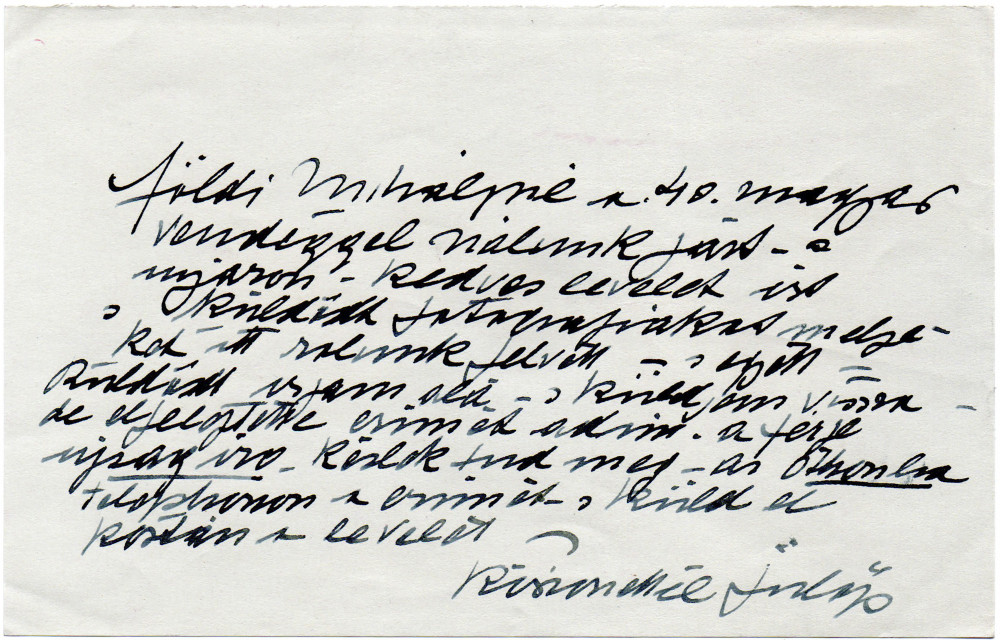 Földi Mihályné a 40. magyar
vendéggel nálunk járt – a
nyáron – kedves levelet írt
s küldött fotografiákat melye-
ket itt rolunk felvett – s egyett
küldött irjam alá – s küldjem vissza –
de elfelejtette címét adni. a férje
ujságiró – kérlek tud meg – az Othonba
telephonon a címét – s küld el
postán a levelét